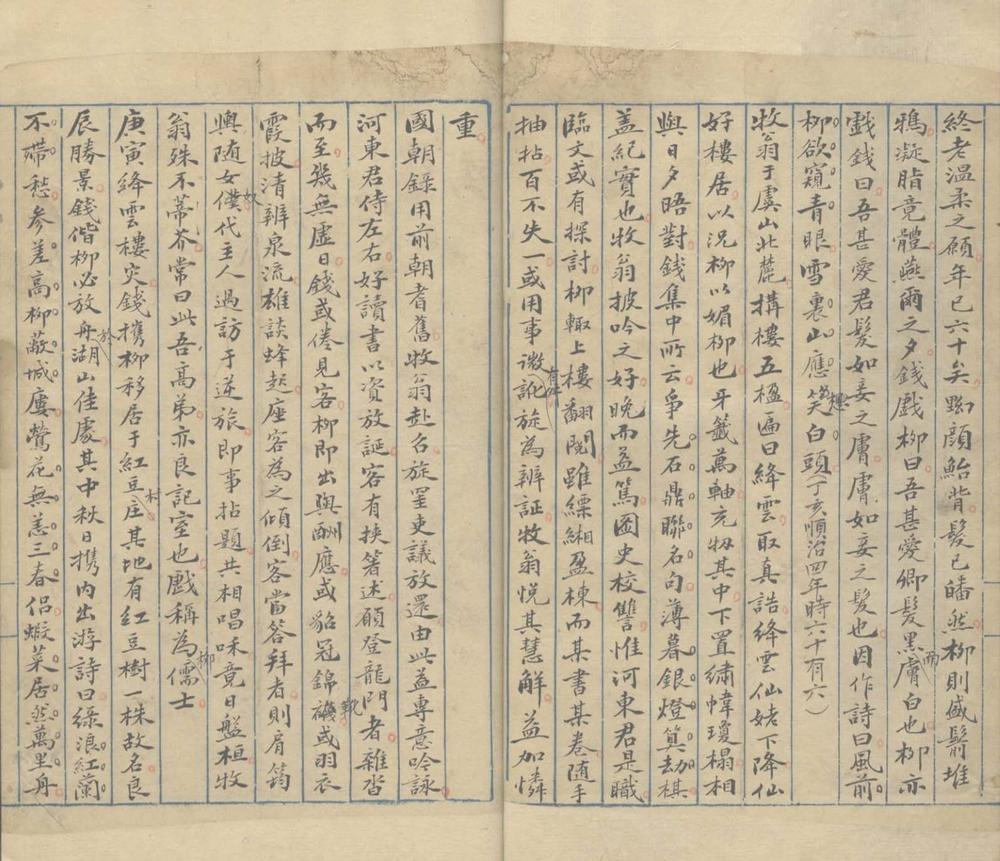 終老温柔之願年已六十矣黝顔鮐背髮已皤然柳則盛鬋堆
鴉凝脂竟體燕爾之夕錢戲柳曰吾甚愛卿髮黑而膚白也柳亦
戲錢曰吾甚愛君髮如妾之膚膚如妾之髮也因作詩曰風前
柳欲窺青眼雪裏山應想笑白頭(丁亥順治四年時六十有六)
牧翁于虞山北麓搆樓五楹匾曰絳雲取真誥絳雲仙姥下降仙
好樓居以況柳以媚柳也牙籤萬軸充牣其中下置繡幃瓊榻相
與日夕晤對錢集中所云爭先石鼎聯名句薄暮銀燈算劫棋
蓋紀實也牧翁披吟之好晚而益篤圖史校讐惟河東君是職
臨文或有探討柳輙上樓翻閱雖縹緗盈棟而某書某卷隨手
抽拈百不失一或用事微訛有舛旋為辨証牧翁悦其慧解益加憐
重
國朝錄用前朝耆舊牧翁赴召旋罣吏議放還由此益專意吟詠
河東君侍左右好讀書以資放誕客有挾著述願登龍門者雜沓
而至幾無虛日錢或倦見客柳即出與酬應或貂冠錦靴或羽衣
霞披清辨泉流雄談蜂起座客為之傾倒客當答拜者則肩筠
輿随女奴代主人過訪于逆旅即事拈題共相唱和竟日盤桓牧
翁殊不蒂芥常曰此吾高弟亦良記室也戲稱為柳儒士
庚寅絳雲樓灾錢携柳移居于紅豆村庄其地有紅豆樹一株故名良
辰勝景錢偕柳必放舟於湖山佳處其中秋日携内出游詩曰綠浪紅蘭
不滯愁參差高柳蔽城樓鶯花無恙三春侣蝦菜居然萬里舟